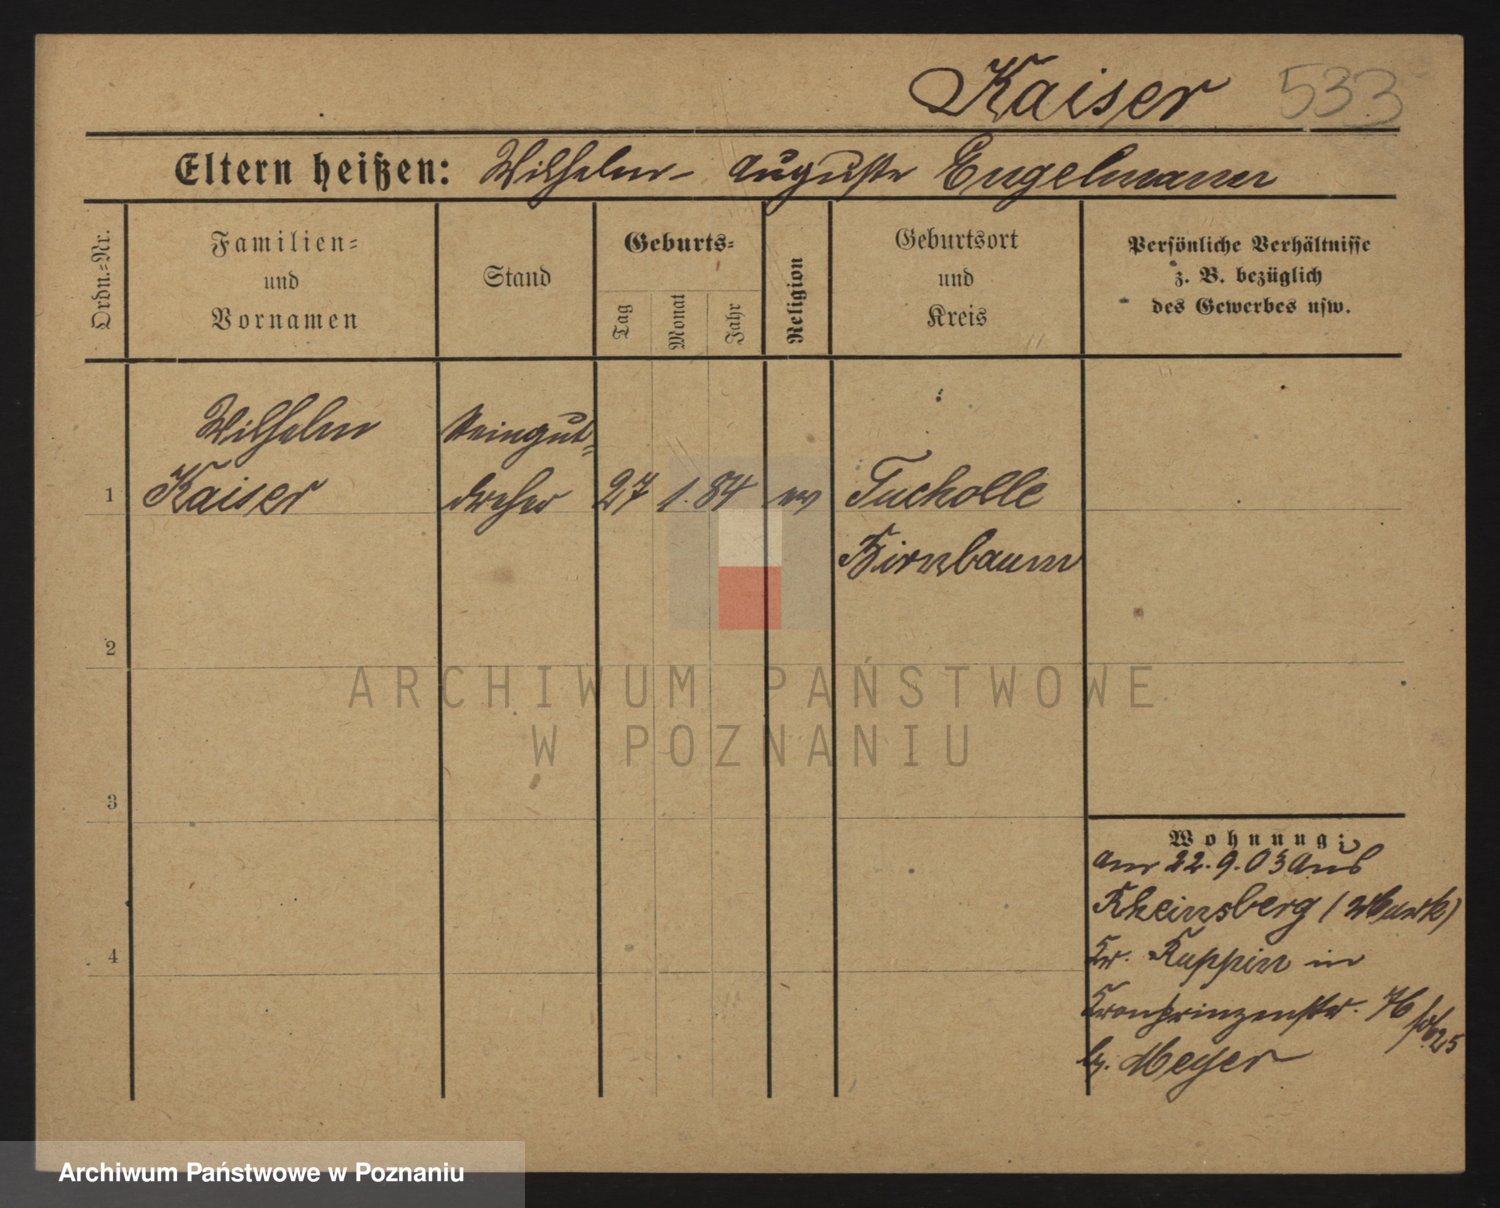 Kaiser 533
Eltern heißen: Wilhelm - Auguste Engelmann
Ordn.-Nr.
Familien-
und
Vornamen
Stand
Geburts-
Tag
Monat
Jahr
Religion
Geburtsort
und
Kreis
Persönliche Verhältnisse
z. B. bezüglich
des Gewerbes usw.
Wilhelm
Kaiser
Steingut-
dreher
1
27 1. 84 ev
Tucholle
Birnbaum
2
3
4
Wohnung:
am 22.9.03 aus
Rheinsberg (Mark)
Kr. Ruppin in
Kronprinzenstr. 76
b. Meyer
ARCHIWUM PAŃSTWOWE
W POZNANIU
Archiwum Państwowe w Poznaniu